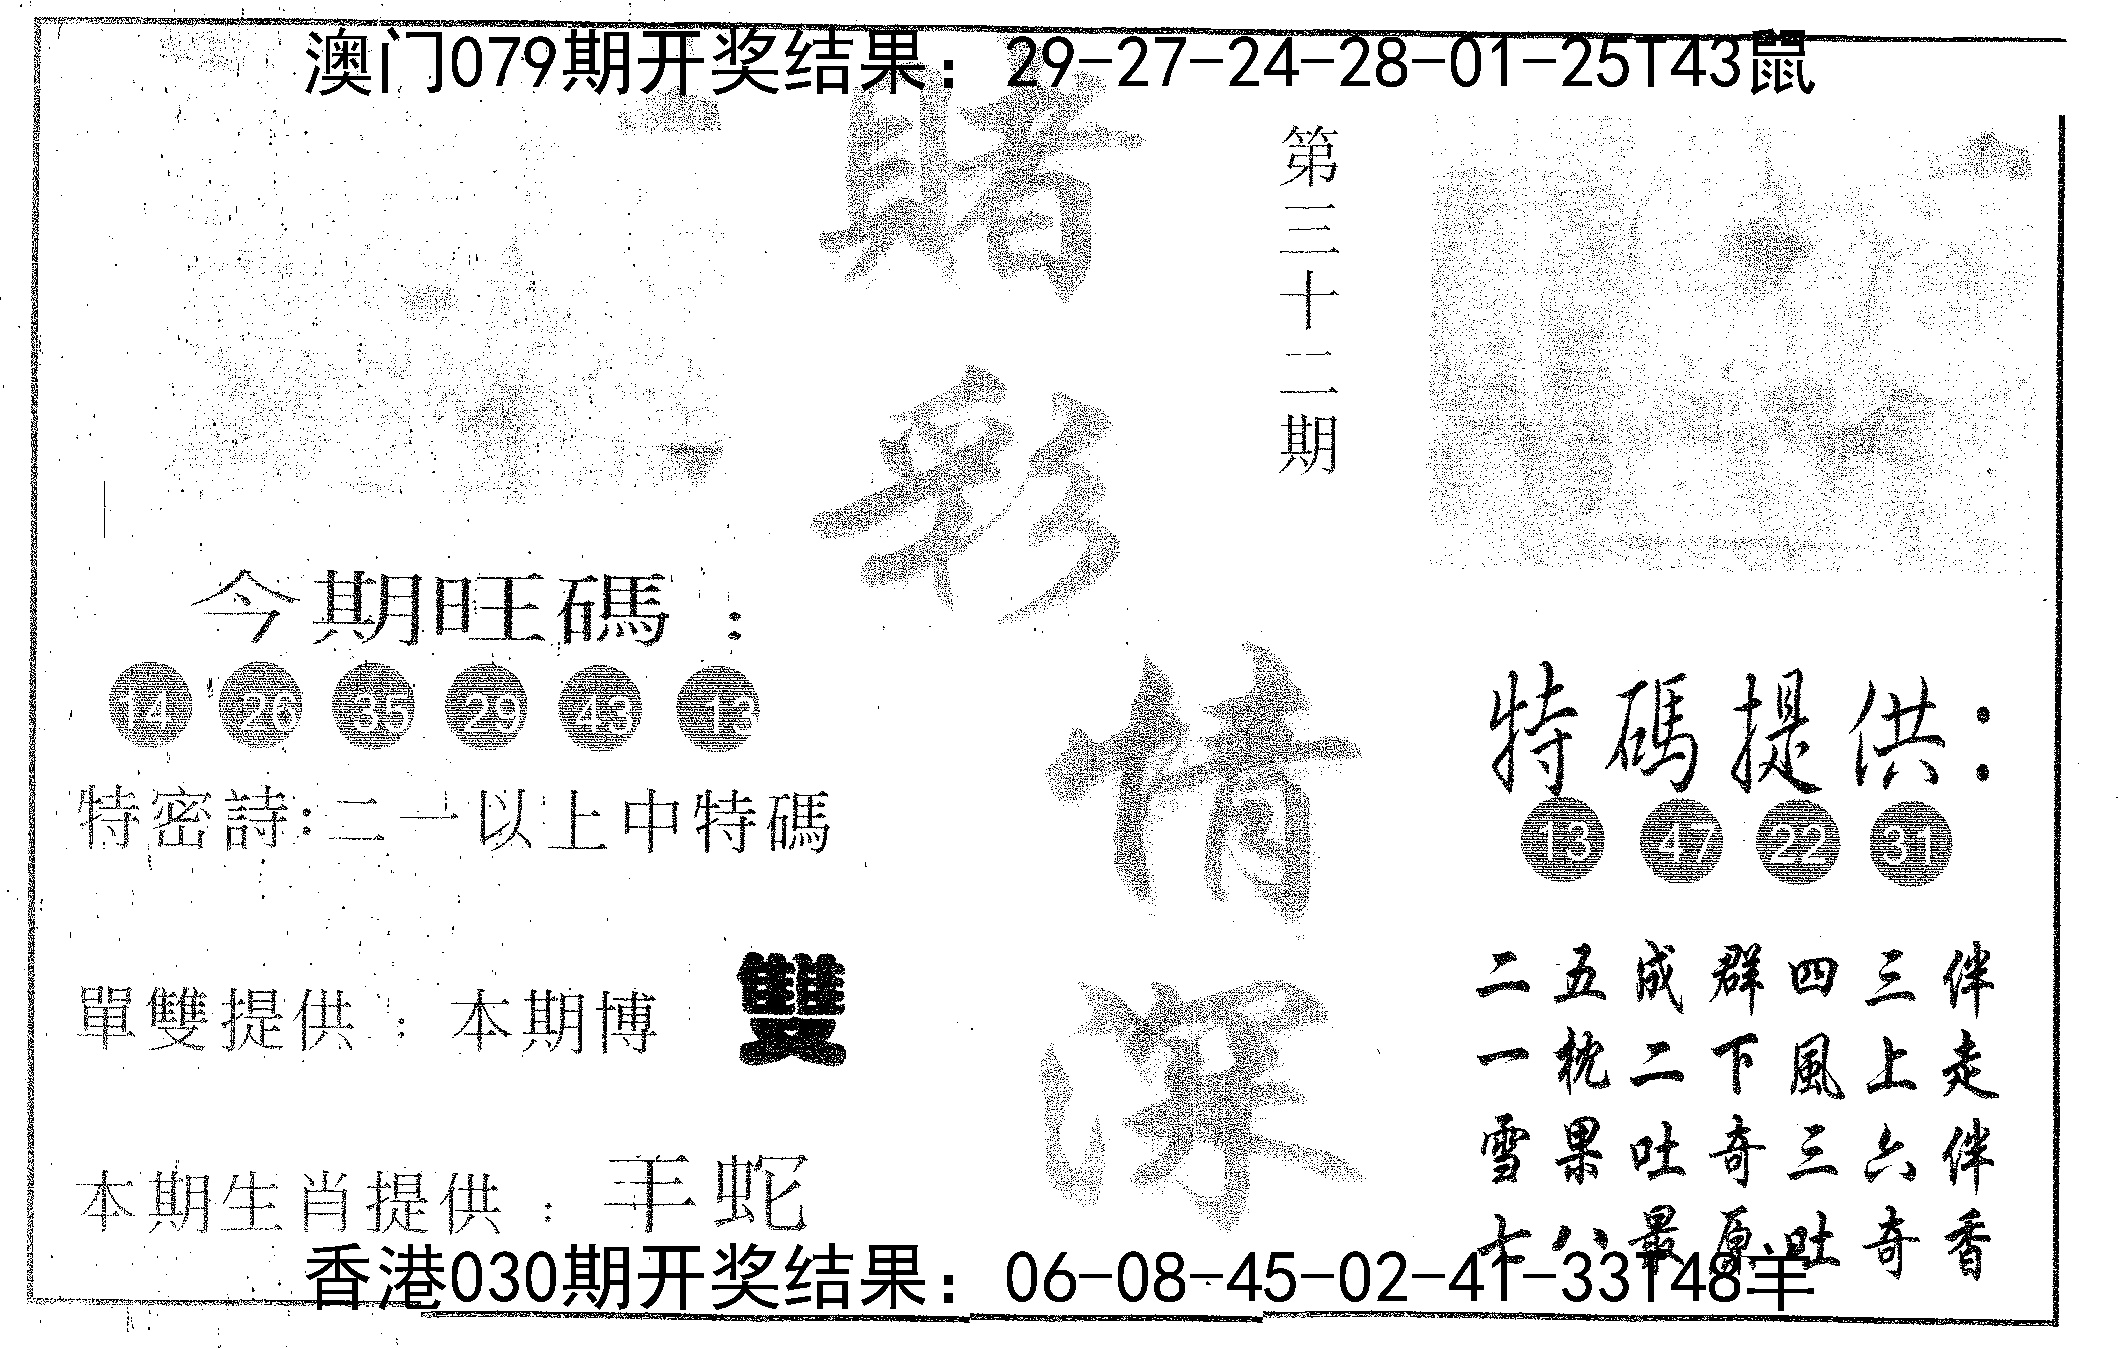 澳门079期开奖结果：29-27-24-28-01-25T43鼠
赌彩情深
第三十二期
今期旺碼：
14 26 35 29 43 13
特密詩:二一以上中特碼
單雙提供：本期博 雙
本期生肖提供：羊蛇
特碼提供：
13 47 22 31
二五成群四三伴
一枕二下風上走
雪果吐奇三六伴
七八最原吐奇香
香港030期开奖结果：06-08-45-02-41-33T48羊